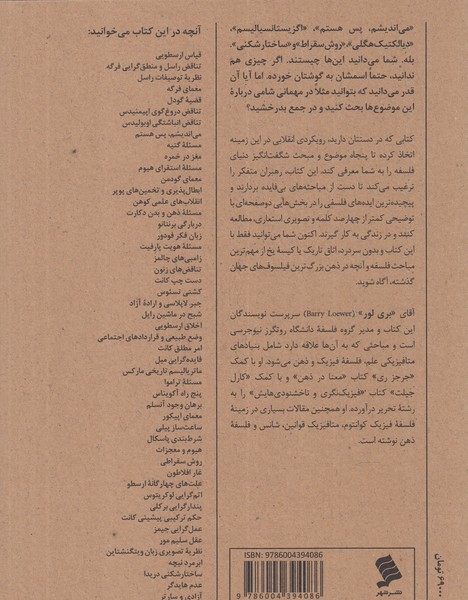 آنچه در این کتاب می‌خوانید:
قیاس ارسطویی
تناقض راسل و منطق‌گرایی فرگه
نظریهٔ توصیفات راسل
معمای فرگه
قضیهٔ گودل
تناقض دروغ‌گوی اپیمنیدس
تناقض انباشتگی اوبولیدس
می‌اندیشم، پس هستم
مسئلهٔ گتیه
مغز در خمره
مسئلهٔ استقرای هیوم
معمای گودمن
ابطال‌پذیری و تخمین‌های پوپر
انقلاب‌های علمی کوهن
مسئلهٔ ذهن و بدن دکارت
دربارگی برنتانو
زبان فکر فودور
مسئلهٔ هویت پارفیت
زامبی‌های چالمرز
تناقض‌های زنون
دست چپ کانت
کشتی تسئوس
جبر لاپلاسی و ارادهٔ آزاد
شبح در ماشین رایل
اخلاق ارسطویی
وضع طبیعی و قراردادهای اجتماعی
امر مطلق کانت
فایده‌گرایی میل
ماتریالیسم تاریخی مارکس
مسئلهٔ تراموا
پنج راه آکویناس
برهان وجود آنسلم
معمای اپیکور
ساعت‌ساز پیلی
شرط‌بندی پاسکال
هیوم و معجزات
روش سقراطی
غار افلاطون
علت‌های چهارگانهٔ ارسطو
اتم‌گرایی لوکریتوس
پندارگرایی برکلی
حکم ترکیبی پیشینی کانت
عمل‌گرایی جیمز
عقل سلیم مور
نظریهٔ تصویری زبان ویتگنشتاین
ابرمرد نیچه
ساختارشکنی دریدا
عدم هایدگر
آزادی و سارتر
«می‌اندیشم، پس هستم»، «اگزیستانسیالیسم»،
«دیالکتیک هگلی»، «روش سقراط» و «ساختارشکنی».
بله. شما می‌دانید این‌ها چیستند. اگر چیزی هم
ندانید، حتماً اسمشان به گوشتان خورده. اما آیا آن
قدر می‌دانید که بتوانید مثلاً در مهمانی شامی دربارهٔ
این موضوع‌ها بحث کنید و در جمع بدرخشید؟
کتابی که در دستتان دارید، رویکردی انقلابی در این زمینه
اتخاذ کرده تا پنجاه موضوع و مبحث شگفت‌انگیز دنیای
فلسفه را به شما معرفی کند. این کتاب، رهبران متفکر را
ترغیب می‌کند تا دست از مباحثه‌های بی‌فایده بردارند و
پیچیده‌ترین ایده‌های فلسفی را در بخش‌هایی دو صفحه‌ای با
توضیحی کمتر از چهارصد کلمه و تصویری استعاری، مطالعه
کنند و در زندگی به کار گیرند. اکنون شما می‌توانید فقط با
این کتاب و بدون سردرد، اتاق تاریک یا کیسهٔ یخ از مهم‌ترین
مباحث فلسفه و آنچه در ذهن بزرگ‌ترین فیلسوف‌های جهان
گذشته، آگاه شوید.
آقای «بری لور» (Barry Loewer) سرپرست نویسندگان
این کتاب و مدیر گروه فلسفهٔ دانشگاه روتگرز نیوجرسی
است و مباحثی که به آن‌ها علاقه دارد شامل بنیادهای
متافیزیکی علم، فلسفهٔ فیزیک و ذهن می‌شود. او با کمک
«جرجز ری» کتاب «معنا در ذهن» و با کمک «کارل
جیلت» کتاب «فیزیک‌نگری و ناخشنودی‌هایش» را به
رشتهٔ تحریر درآورده. او همچنین مقالات بسیاری در زمینهٔ
فلسفهٔ فیزیک کوانتوم، متافیزیک قوانین، شانس و فلسفهٔ
ذهن نوشته است.
ISBN: 9786004394086
9 786004 394086
نشر شهر
۶۹۰۰۰ تومان